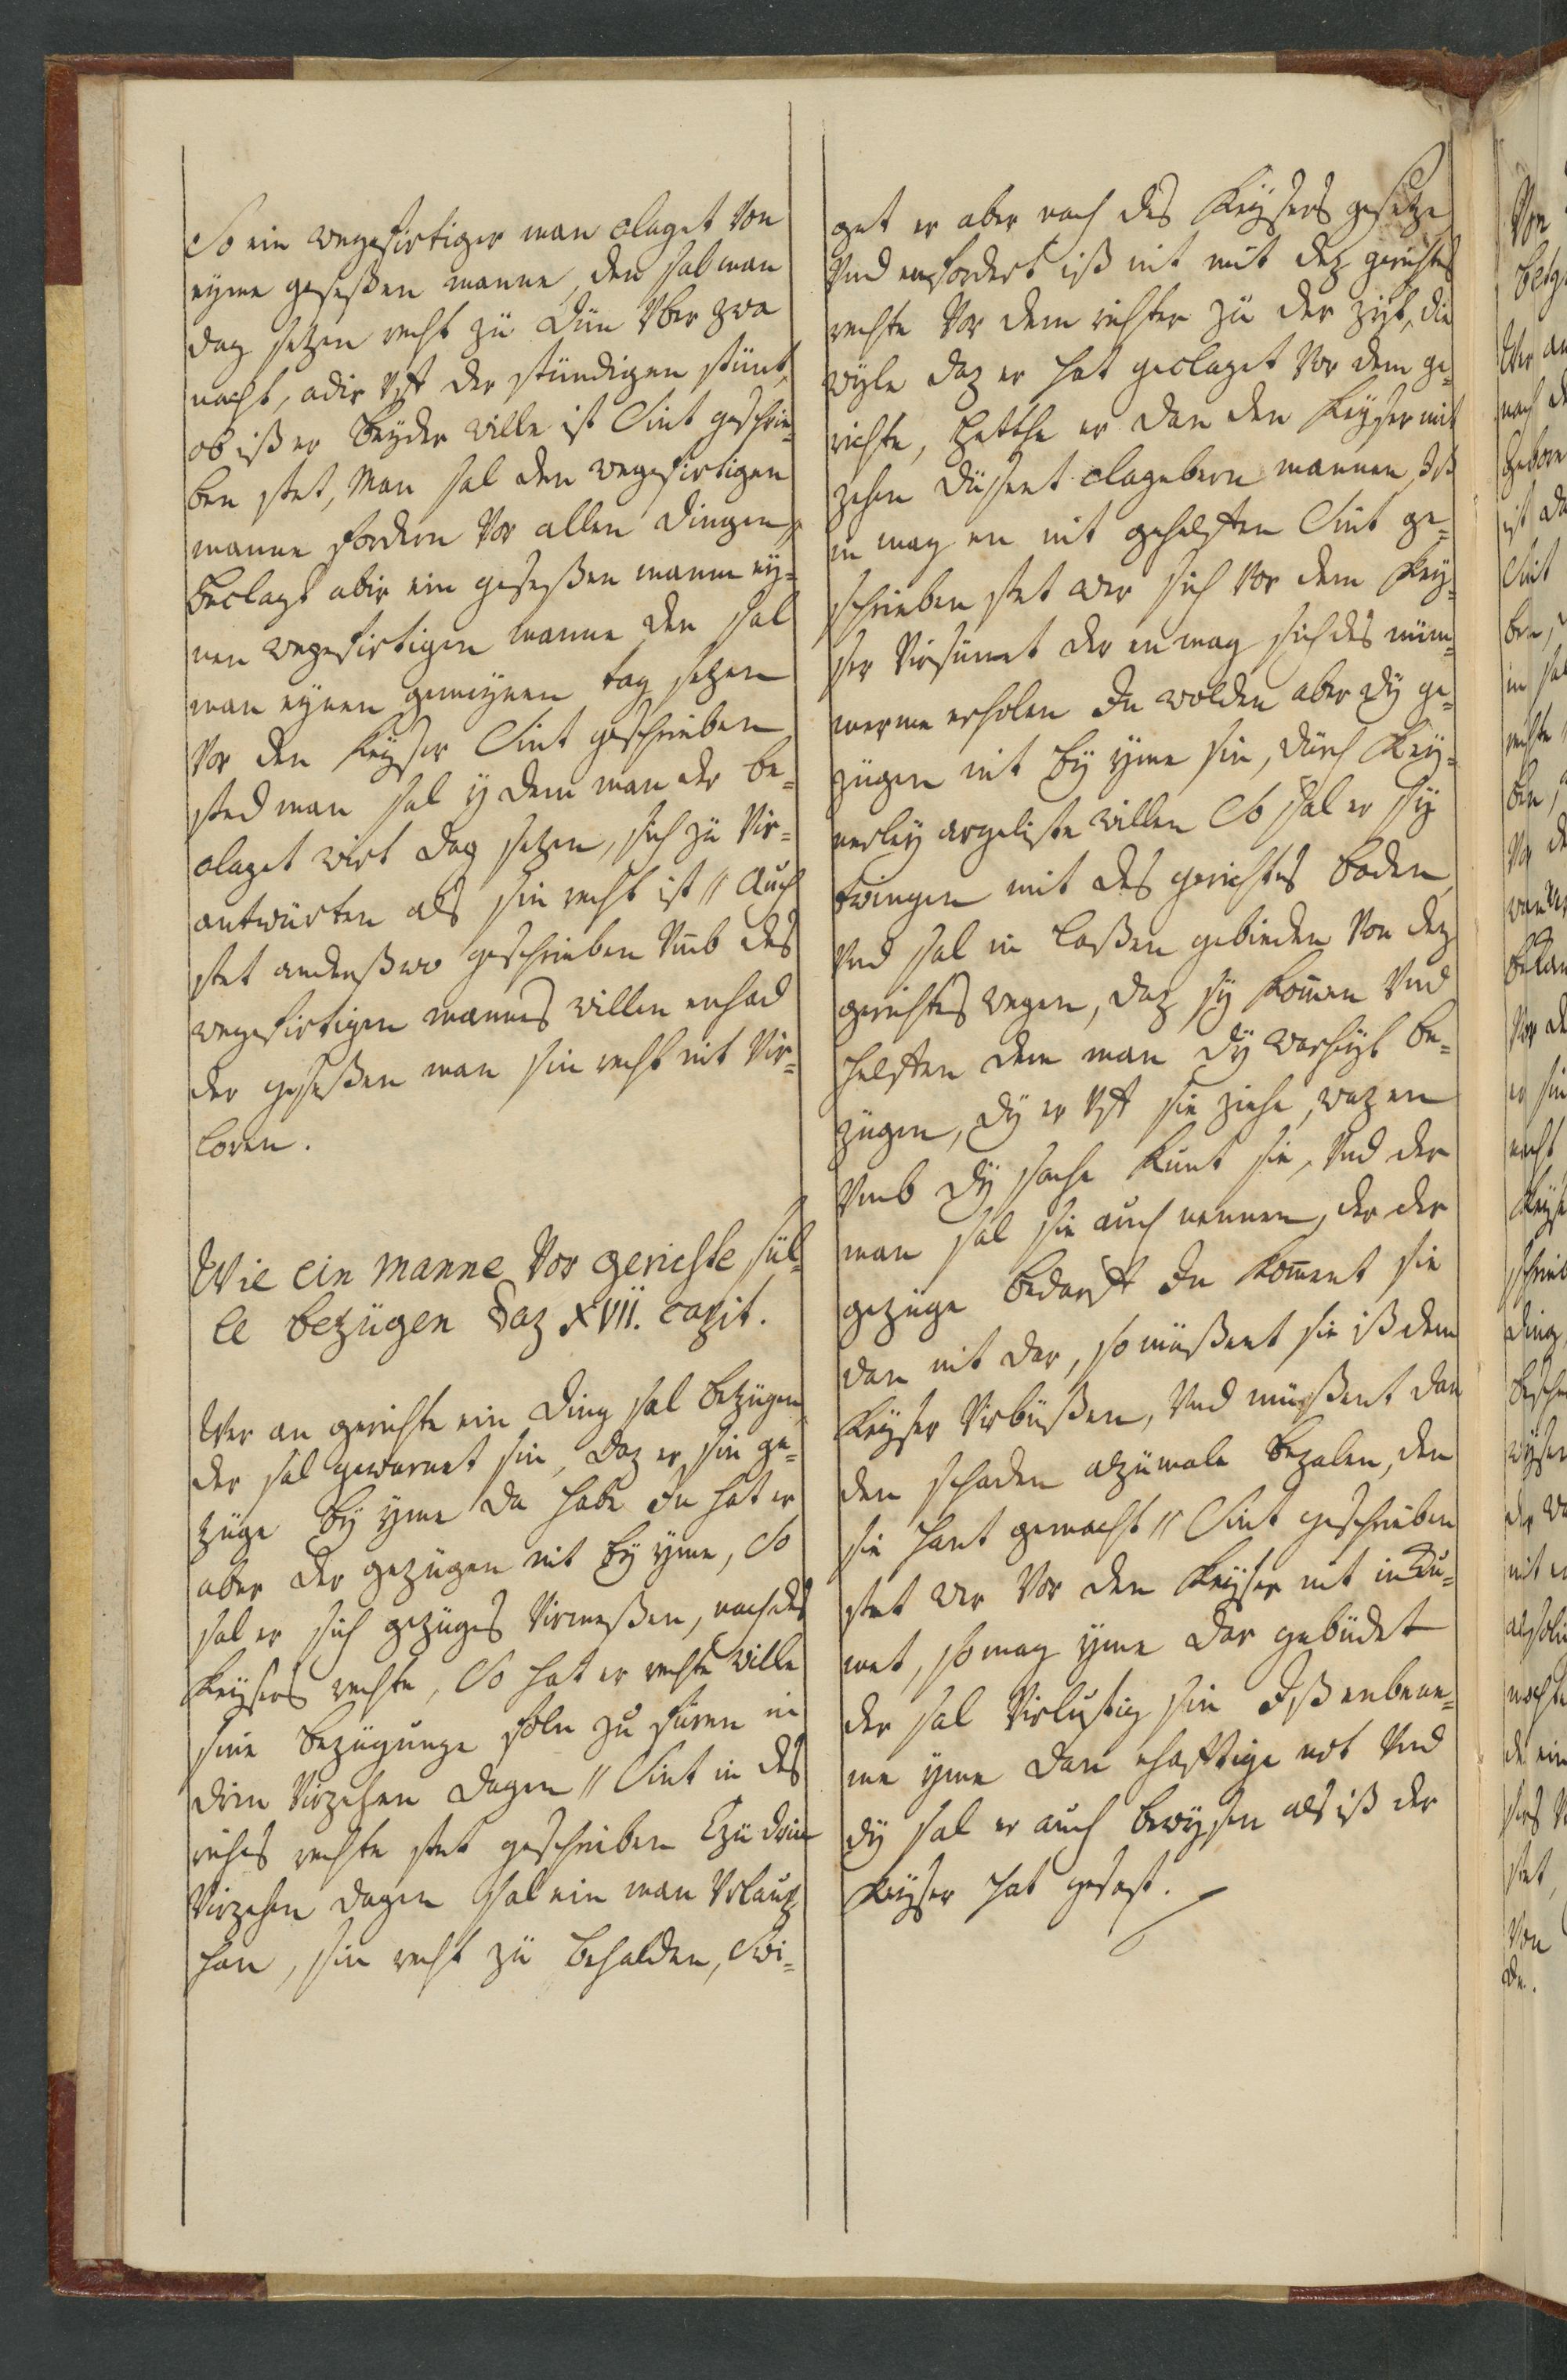 So ein wegefirtiger man claget von
eyme geseßen manne, den sal man
dag setzen recht zü dün Vber zwa
nacht, adir vff der stündigen stünt,
ob iß er beyder wille ist Sint geschrie-
ben stet, Man sal den wegefirtigen
manne fordern Vor allen dingen,
beclagt abir ein geseßen manne ey-
nen wegefirtigen manne den sal
man eynen gemeynen tag setzen
Vor den Keyser Sint geschrieben
sted man sal y dem man der be-
claget wirt dag setzen, sich zü Vir-
antwürten als sin recht ist // Auch
stet anderßwo geschrieben Vmb des
wegefirtigen mannes willen enhad
der geseßen man sin recht nit Vir-
loren.
Wie ein manne Vor gerichte sül-
le bezügen daz XVII. capit.
Wer an gerichte ein ding sal bezügen
der sal gewarnet sin, daz er sin ge-
züge by yme da habe In hat er
aber der gezügen nit by yme, So
sal er sich gezüges Virmeßen, nach des
Keysers rechte, So hat er rechte wille
sine bezügunge foln zu füren in
drin Virzehen dagen // Sint in des
riches rechte stet geschrieben Czü drin
Virzehen dagen sal ein man Vrlaup
han, sin recht zü behalden, Swi-
get er aber nach des Keysers gesetze
Vnd enfordert iß nit mit dez gerichtes
rechte Vor dem richter zü der zyt, die
wyle daz er hat geclaget Vor dem ge-
richte, Hette er dan den Keyser mit
zehen düsent clagebern mannen, Iß
in mag en nit gehelffen Sint ge-
schrieben stet wer sich Vor dem Key-
ser Virsümet der en mag sich des nüm-
merme erholen In wolden aber dy ge-
zügen nit by yme sin, dürch Key-
nerley argeliste willen So sal er sy
twingen mit des gerichtes boden,
Vnd sal in laßen gebieden Von dez
gerichtes wegen, daz sy kom̄en Vnd
helffen dem man dy warheyt be-
zügen, dy er vff sie ziehe, waz en
Vmb dy sache kunt sie, Vnd der
man sal sie auch nennen, der der
gezüge bedarff In kom̄ent sie
dan nit dar, so müßent sie iß dem
Keyser Virbüßen, Vnd müßent dan
den schaden alzümale bezalen, den
sie hant gemacht // Sint geschrieben
stet wer Vor den Keyser nit in kü-
met, so mag yme dar gebüdet
der sal Virlustig sin Iß enbene-
me yme dan ehafftige not Vnd
dy sal er auch bewysen als iß der
Keyser hat gesast.